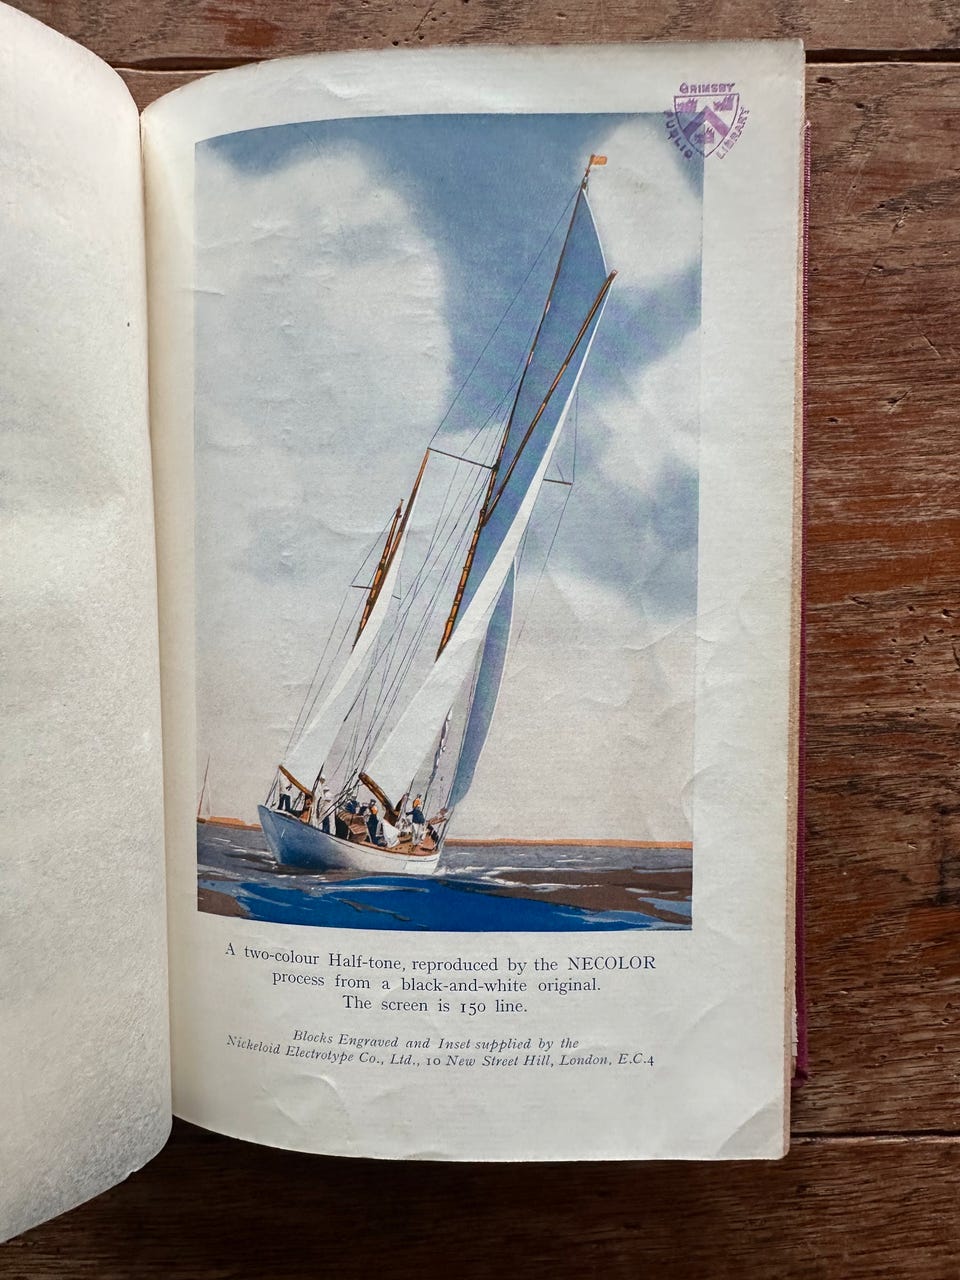 GRIMSBY
PUBLIC LIBRARY
A two-colour Half-tone, reproduced by the NECOLOR
process from a black-and-white original.
The screen is 150 line.
Blocks Engraved and Inset supplied by the
Nickeloid Electrotype Co., Ltd., 10 New Street Hill, London, E.C.4